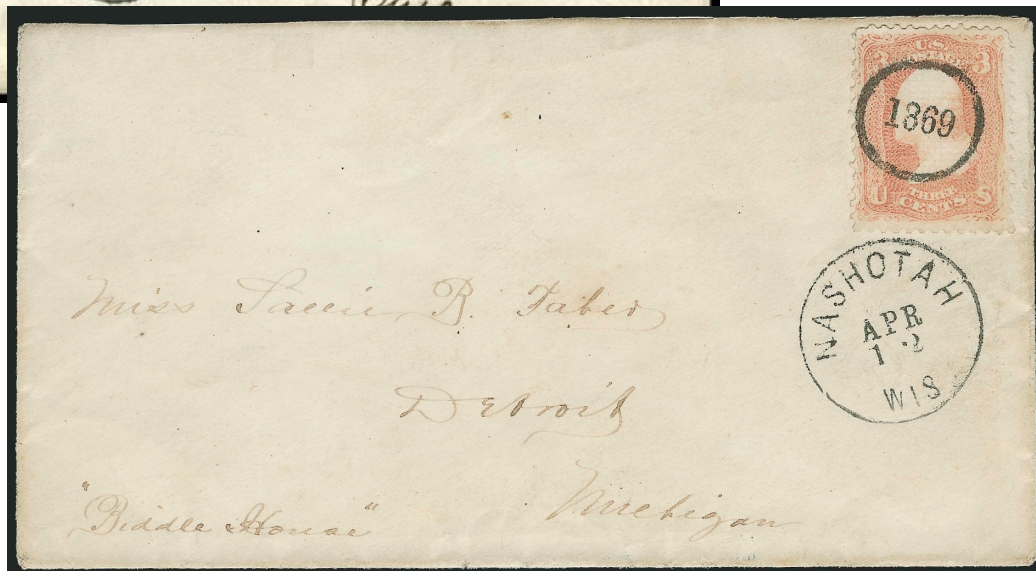 3 U.S. 3
POSTAGE
1869
U THREE S
CENTS
NASHOTAH
APR
12
WIS
Miss Sallie B. Taber
Detroit
Michigan
"Biddle House"